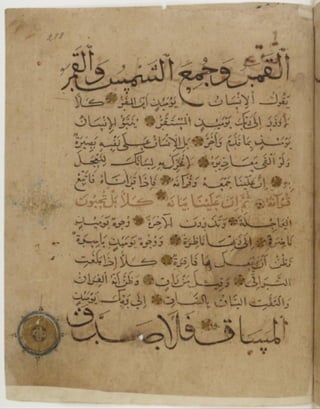 القمر وجمع الشمس والقمر
يقول الإنسان يومئذ أين المفر كلا
لا وزر إلى ربك يومئذ المستقر ينبؤ الإنسان
يومئذ بما قدم وأخر بل الإنسان على نفسه بصيرة
ولو ألقى معاذيره لا تحرك به لسانك لتعجل
به إن علينا جمعه وقرآنه فإذا قرأناه فاتبع
قرآنه ثم إن علينا بيانه كلا بل تحبون
العاجلة وتذرون الآخرة وجوه يومئذ
ناضرة إلى ربها ناظرة ووجوه يومئذ باسرة
تظن أن يفعل بها فاقرة كلا إذا بلغت
التراقي وقيل من راق وظن أنه الفراق
والتفت الساق بالساق إلى ربك يومئذ
المساق فلا صدق و